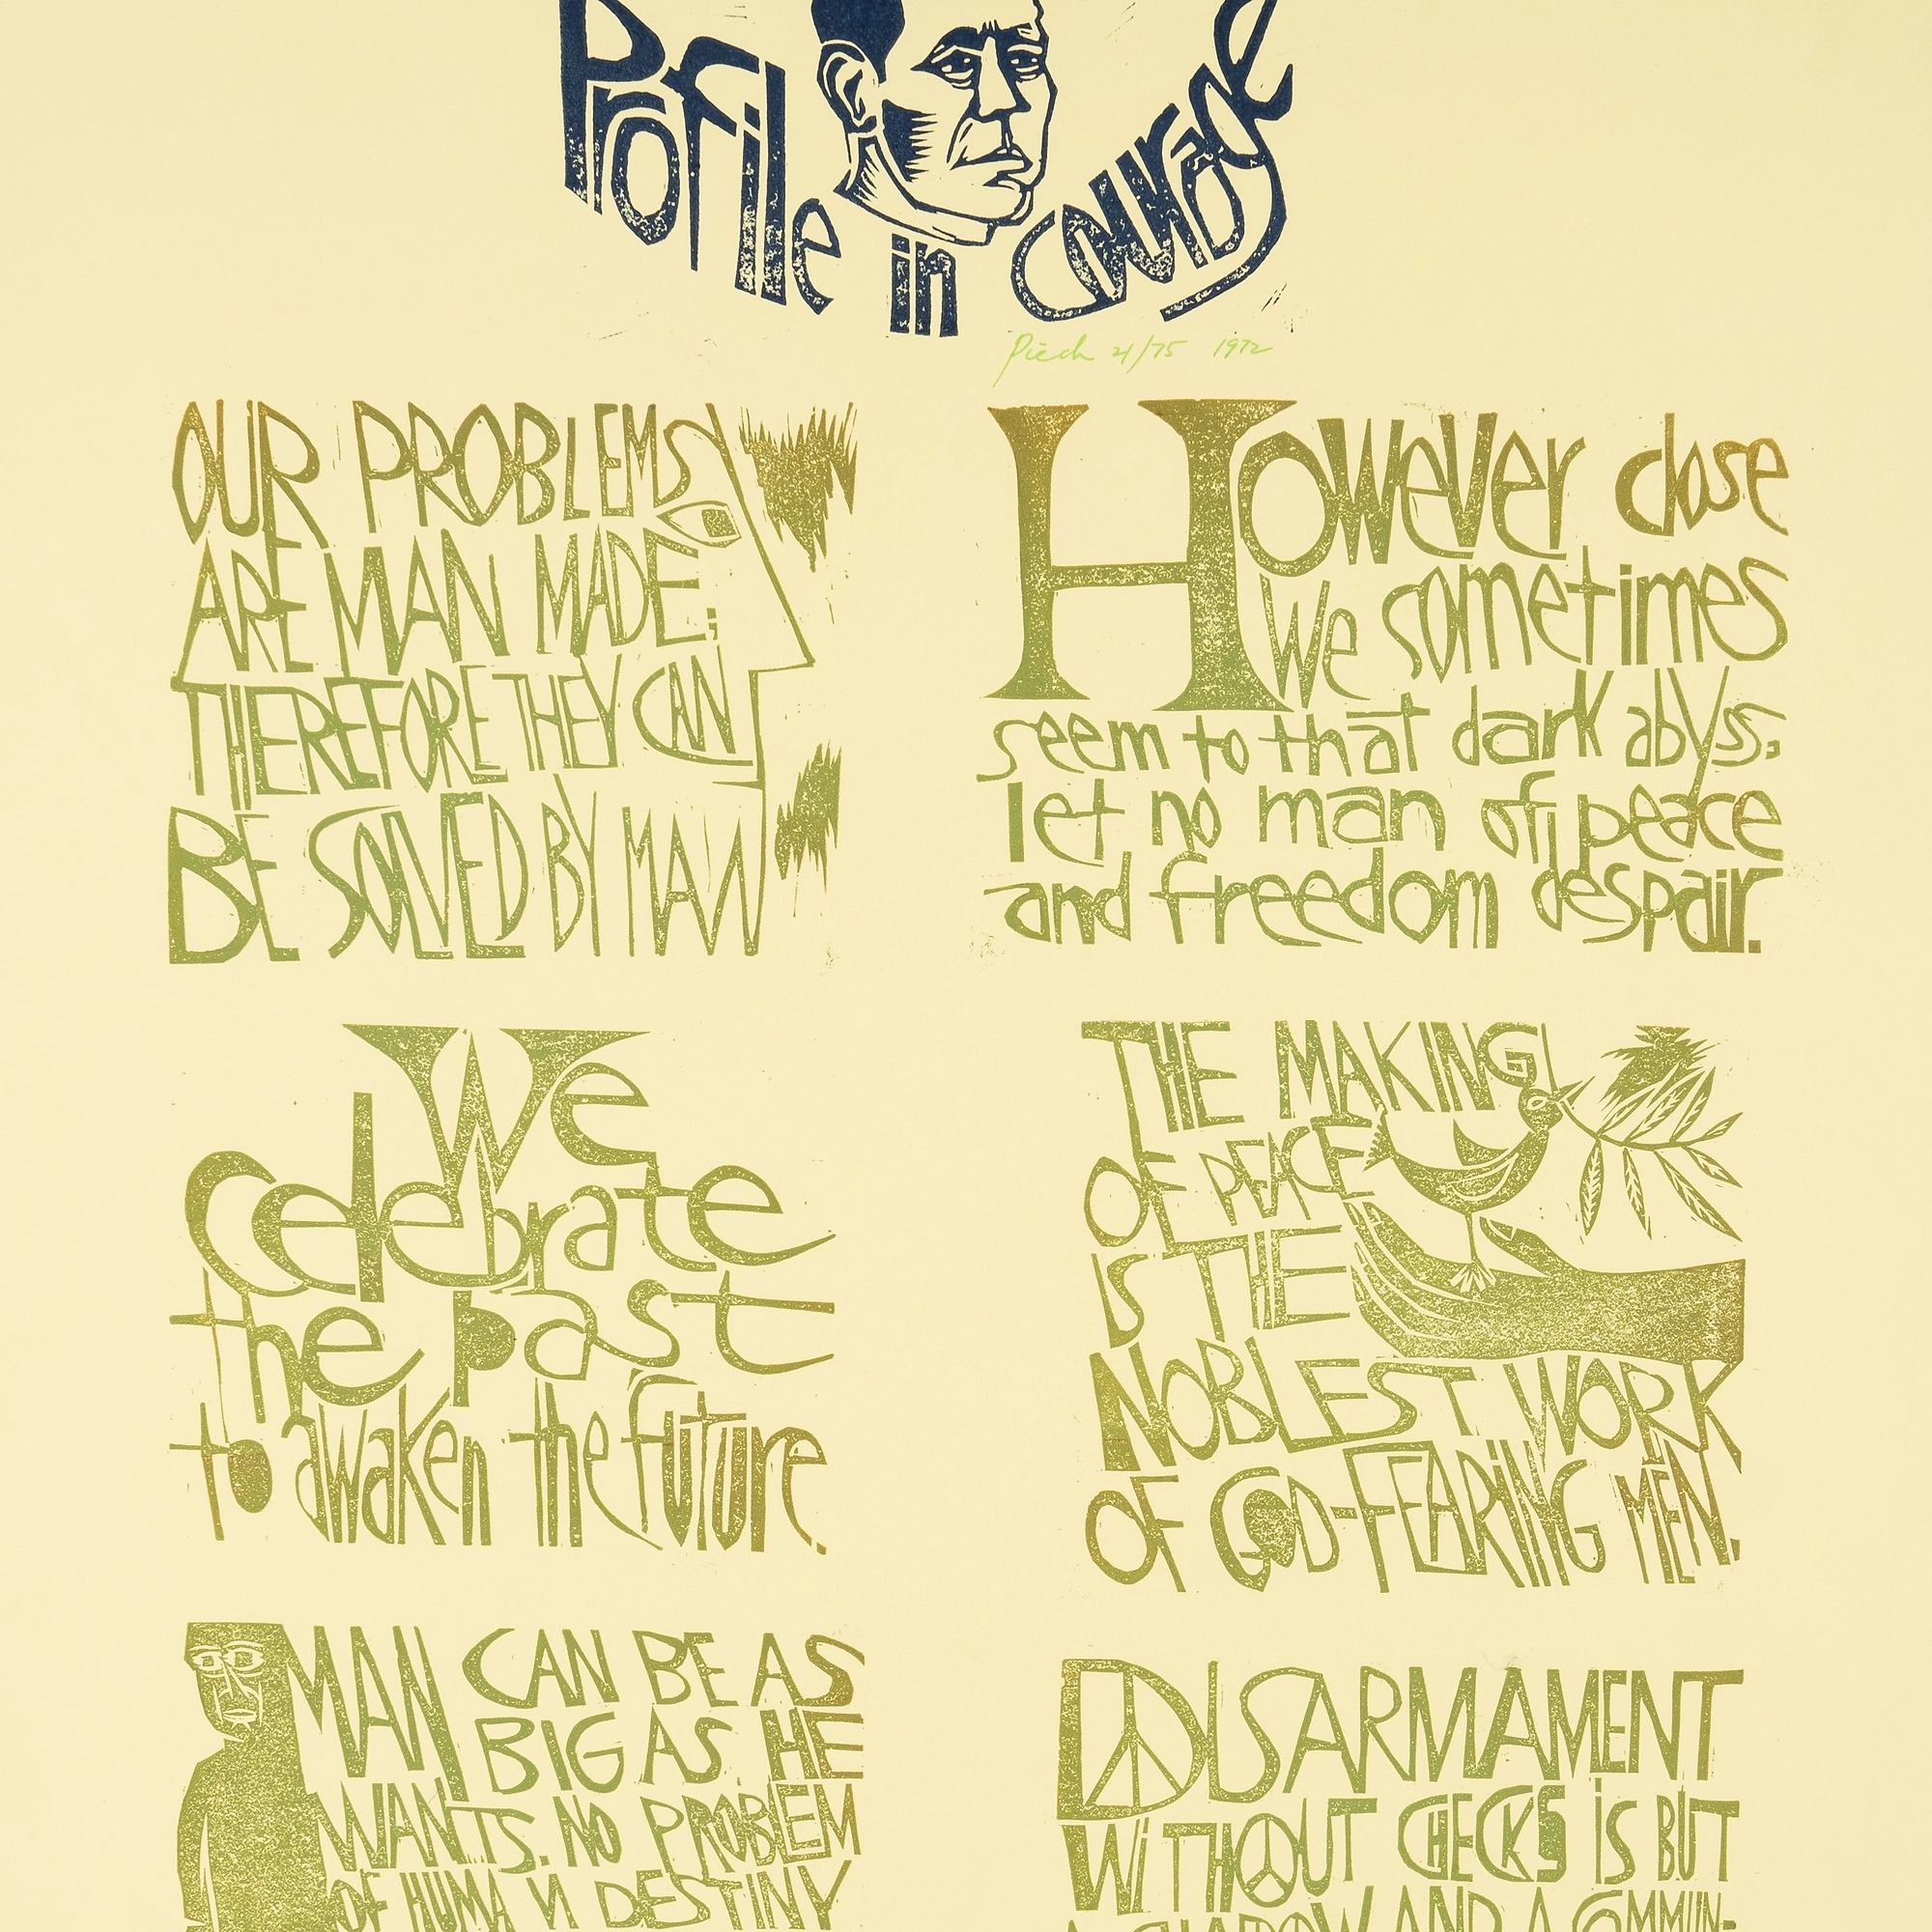 Profile in Courage
Piech 21/75 1972
OUR PROBLEMS
ARE MAN MADE;
THEREFORE THEY CAN
BE SOLVED BY MAN
However close
we sometimes
seem to that dark abyss;
let no man of peace
and freedom despair.
We
celebrate
the past
to awaken the future.
THE MAKING
OF PEACE
IS THE
NOBLEST WORK
OF GOD-FEARING MEN.
MAN CAN BE AS
BIG AS HE
WANTS. NO PROBLEM
OF HUMAN DESTINY
DISARMAMENT
WITHOUT CHECKS IS BUT
A SHADOW AND A COMMUN-